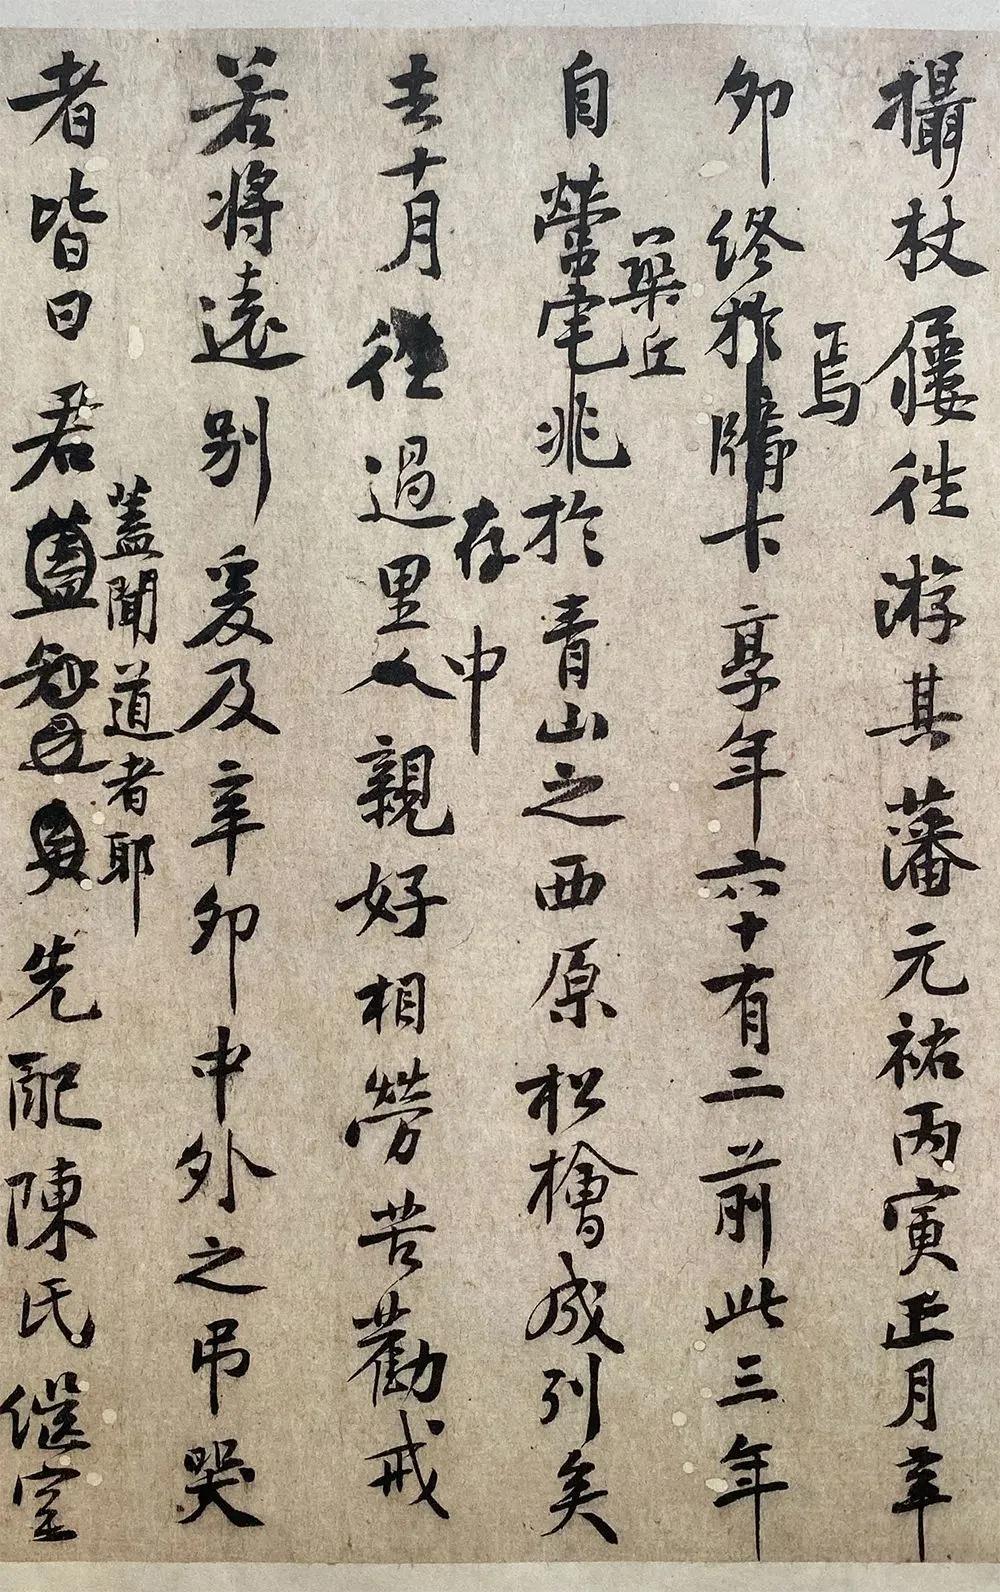 攝杖屨往游其藩元祐丙寅正月辛
焉
卯終於牖下享年六十有二前此三年
築丘
自營宅兆於青山之西原松檜成列矣
存中
去十月往過里人親好相勞苦勸戒
若將遠別爰及辛卯中外之吊哭
蓋聞道者耶
者皆曰君蓋先配陳氏繼室